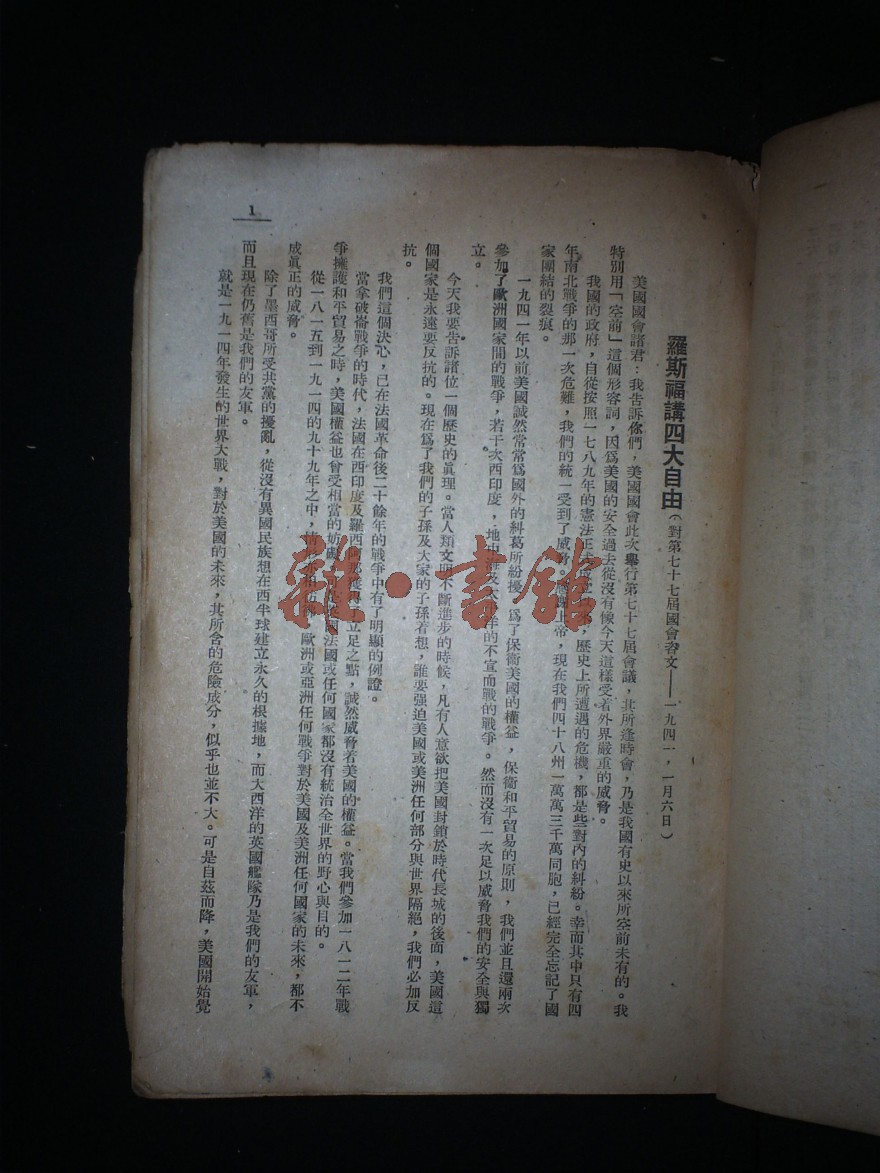 羅斯福講四大自由(對第七十七屆國會咨文——一九四一,一月六日)
美國國會諸君:我告訴你們,美國國會此次舉行第七十七屆會議,其所逢時會,乃是我國有史以來所空前未有的。我
特別用「空前」這個形容詞,因爲美國的安全過去從沒有像今天這樣受着外界嚴重的威脅。
我國的政府,自從按照一七八九年的憲法正式成立以來,歷史上所遭遇的危機,都是些對內的糾紛。幸而其中只有四
年南北戰爭的那一次危難,我們的統一受到了威脅。感謝上帝,現在我們四十八州一萬萬三千萬同胞,已經完全忘記了國
家團結的裂痕。
一九四一年以前美國誠然常常爲國外的糾葛所紛擾,爲了保衛美國的權益,保衛和平貿易的原則,我們並且還兩次
參加了歐洲國家間的戰爭,若干次西印度,地中海及太平洋的不宣而戰的戰爭。然而沒有一次足以威脅我們的安全與獨
立。
今天我要告訴諸位一個歷史的眞理。當人類文明不斷進步的時候,凡有人意欲把美國封鎖於時代長城的後面,美國這
個國家是永遠要反抗的。現在爲了我們的子孫及大家的子孫着想,誰要强迫美國或美洲任何部分與世界隔絕,我們必加反
抗。
我們這個決心,已在法國革命後二十餘年的戰爭中有了明顯的例證。
當拿破崙戰爭的時代,法國在西印度及羅西阿那獲得了立足之點,誠然威脅着美國的權益。當我們參加一八一二年戰
爭擁護和平貿易之時,美國權益也曾受相當的妨 國法國或任何國家都沒有統治全世界的野心與目的。
從一八一五到一九一四的九十九年之中,情 歐洲或亞洲任何戰爭對於美國及美洲任何國家的未來,都不
成眞正的威脅。
除了墨西哥所受共黨的擾亂,從沒有異國民族想在西半球建立永久的根據地,而大西洋的英國艦隊乃是我們的友軍,
而且現在仍舊是我們的友軍。
就是一九一四年發生的世界大戰,對於美國的未來,其所含的危險成分,似乎也並不大。可是自茲而降,美國開始覺
1
雜·書館